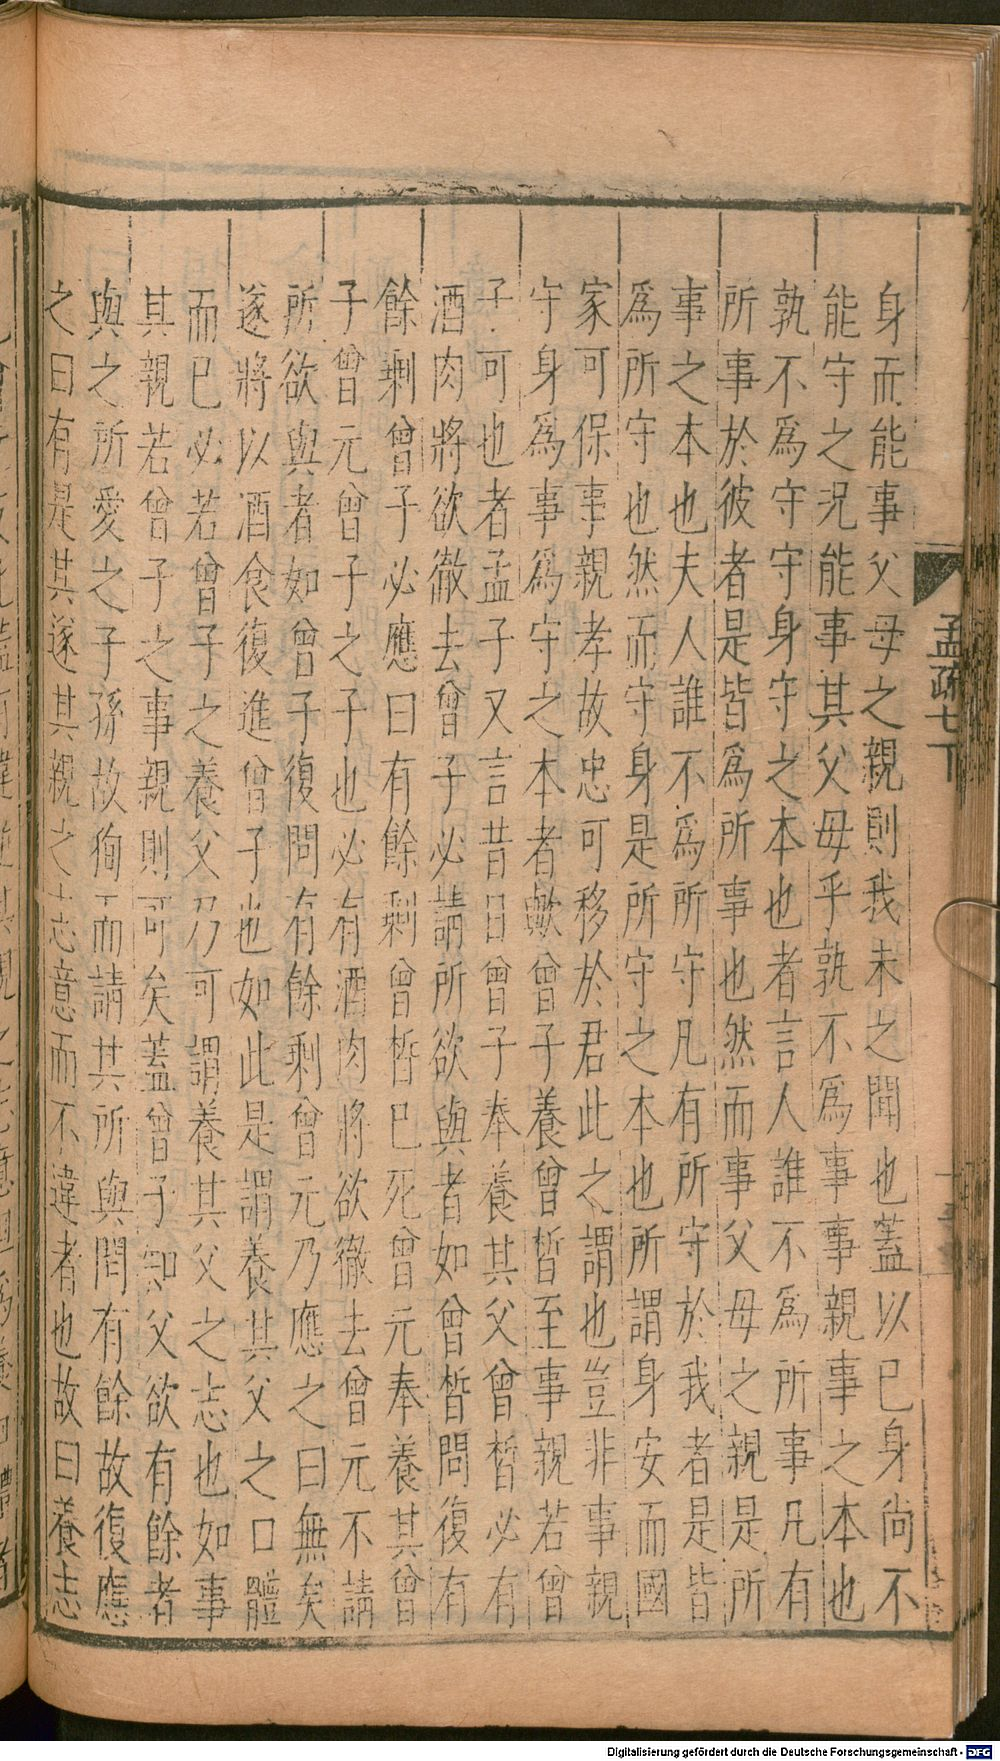 孟疏七下
身而能事父母之親則我未之聞也蓋以已身尚不
能守之況能事其父母乎孰不爲事事親事之本也
孰不爲守守身守之本也者言人誰不爲所事凡有
所事於彼者是皆爲所事也然而事父母之親是所
事之本也夫人誰不爲所守凡有所守於我者是皆
爲所守也然而守身是所守之本也所謂身安而國
家可保事親孝故忠可移於君此之謂也豈非事親
守身爲事爲守之本者歟曾子養曾晳至事親若曾
子可也者孟子又言昔日曾子奉養其父曾晳必有
酒肉將欲徹去曾子必請所欲與者如曾晳問復有
餘剩曾子必應曰有餘剩曾晳巳死曾元奉養其曾
子曾元曾子之子也必有酒肉將欲徹去曾元不請
所欲與者如曾子復問有餘剩曾元乃應之曰無矣
遂將以酒食復進曾子也如此是謂養其父之口體
而巳必若曾子之養父乃可謂養其父之志也如事
其親若曾子之事親則可矣蓋曾子知父欲有餘者
與之所愛之子孫故徇而請其所與問有餘故復應
之曰有是其遂其親之志意而不違者也故曰養志
Digitalisierung gefördert durch die Deutsche Forschungsgemeinschaft - DFG